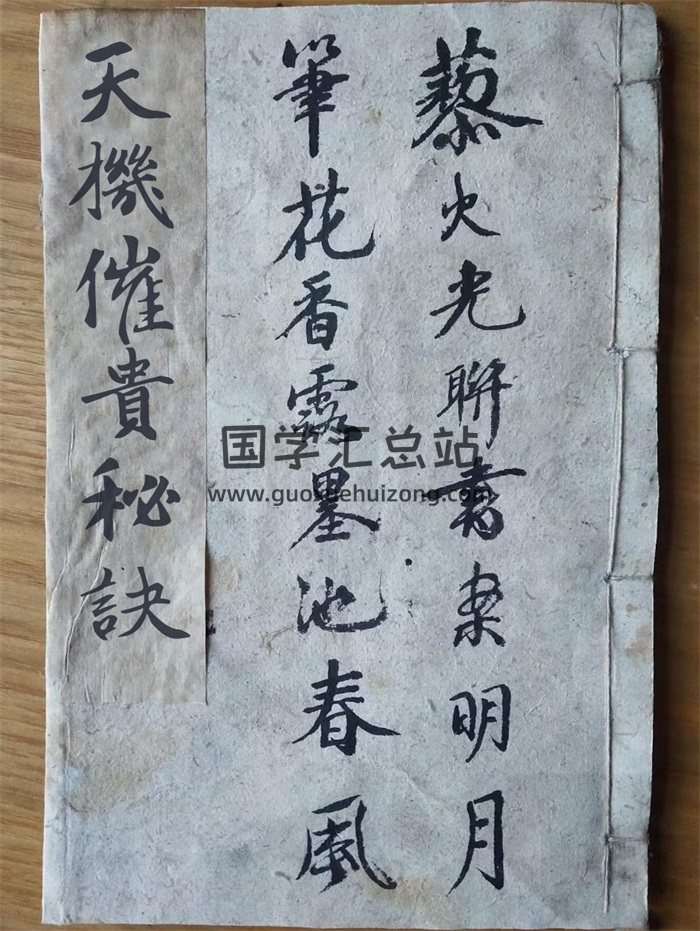 藜火光聯書案明月
筆花香露墨池春風
天機催貴秘訣
国学汇总站
www.guoxuehuizong.com